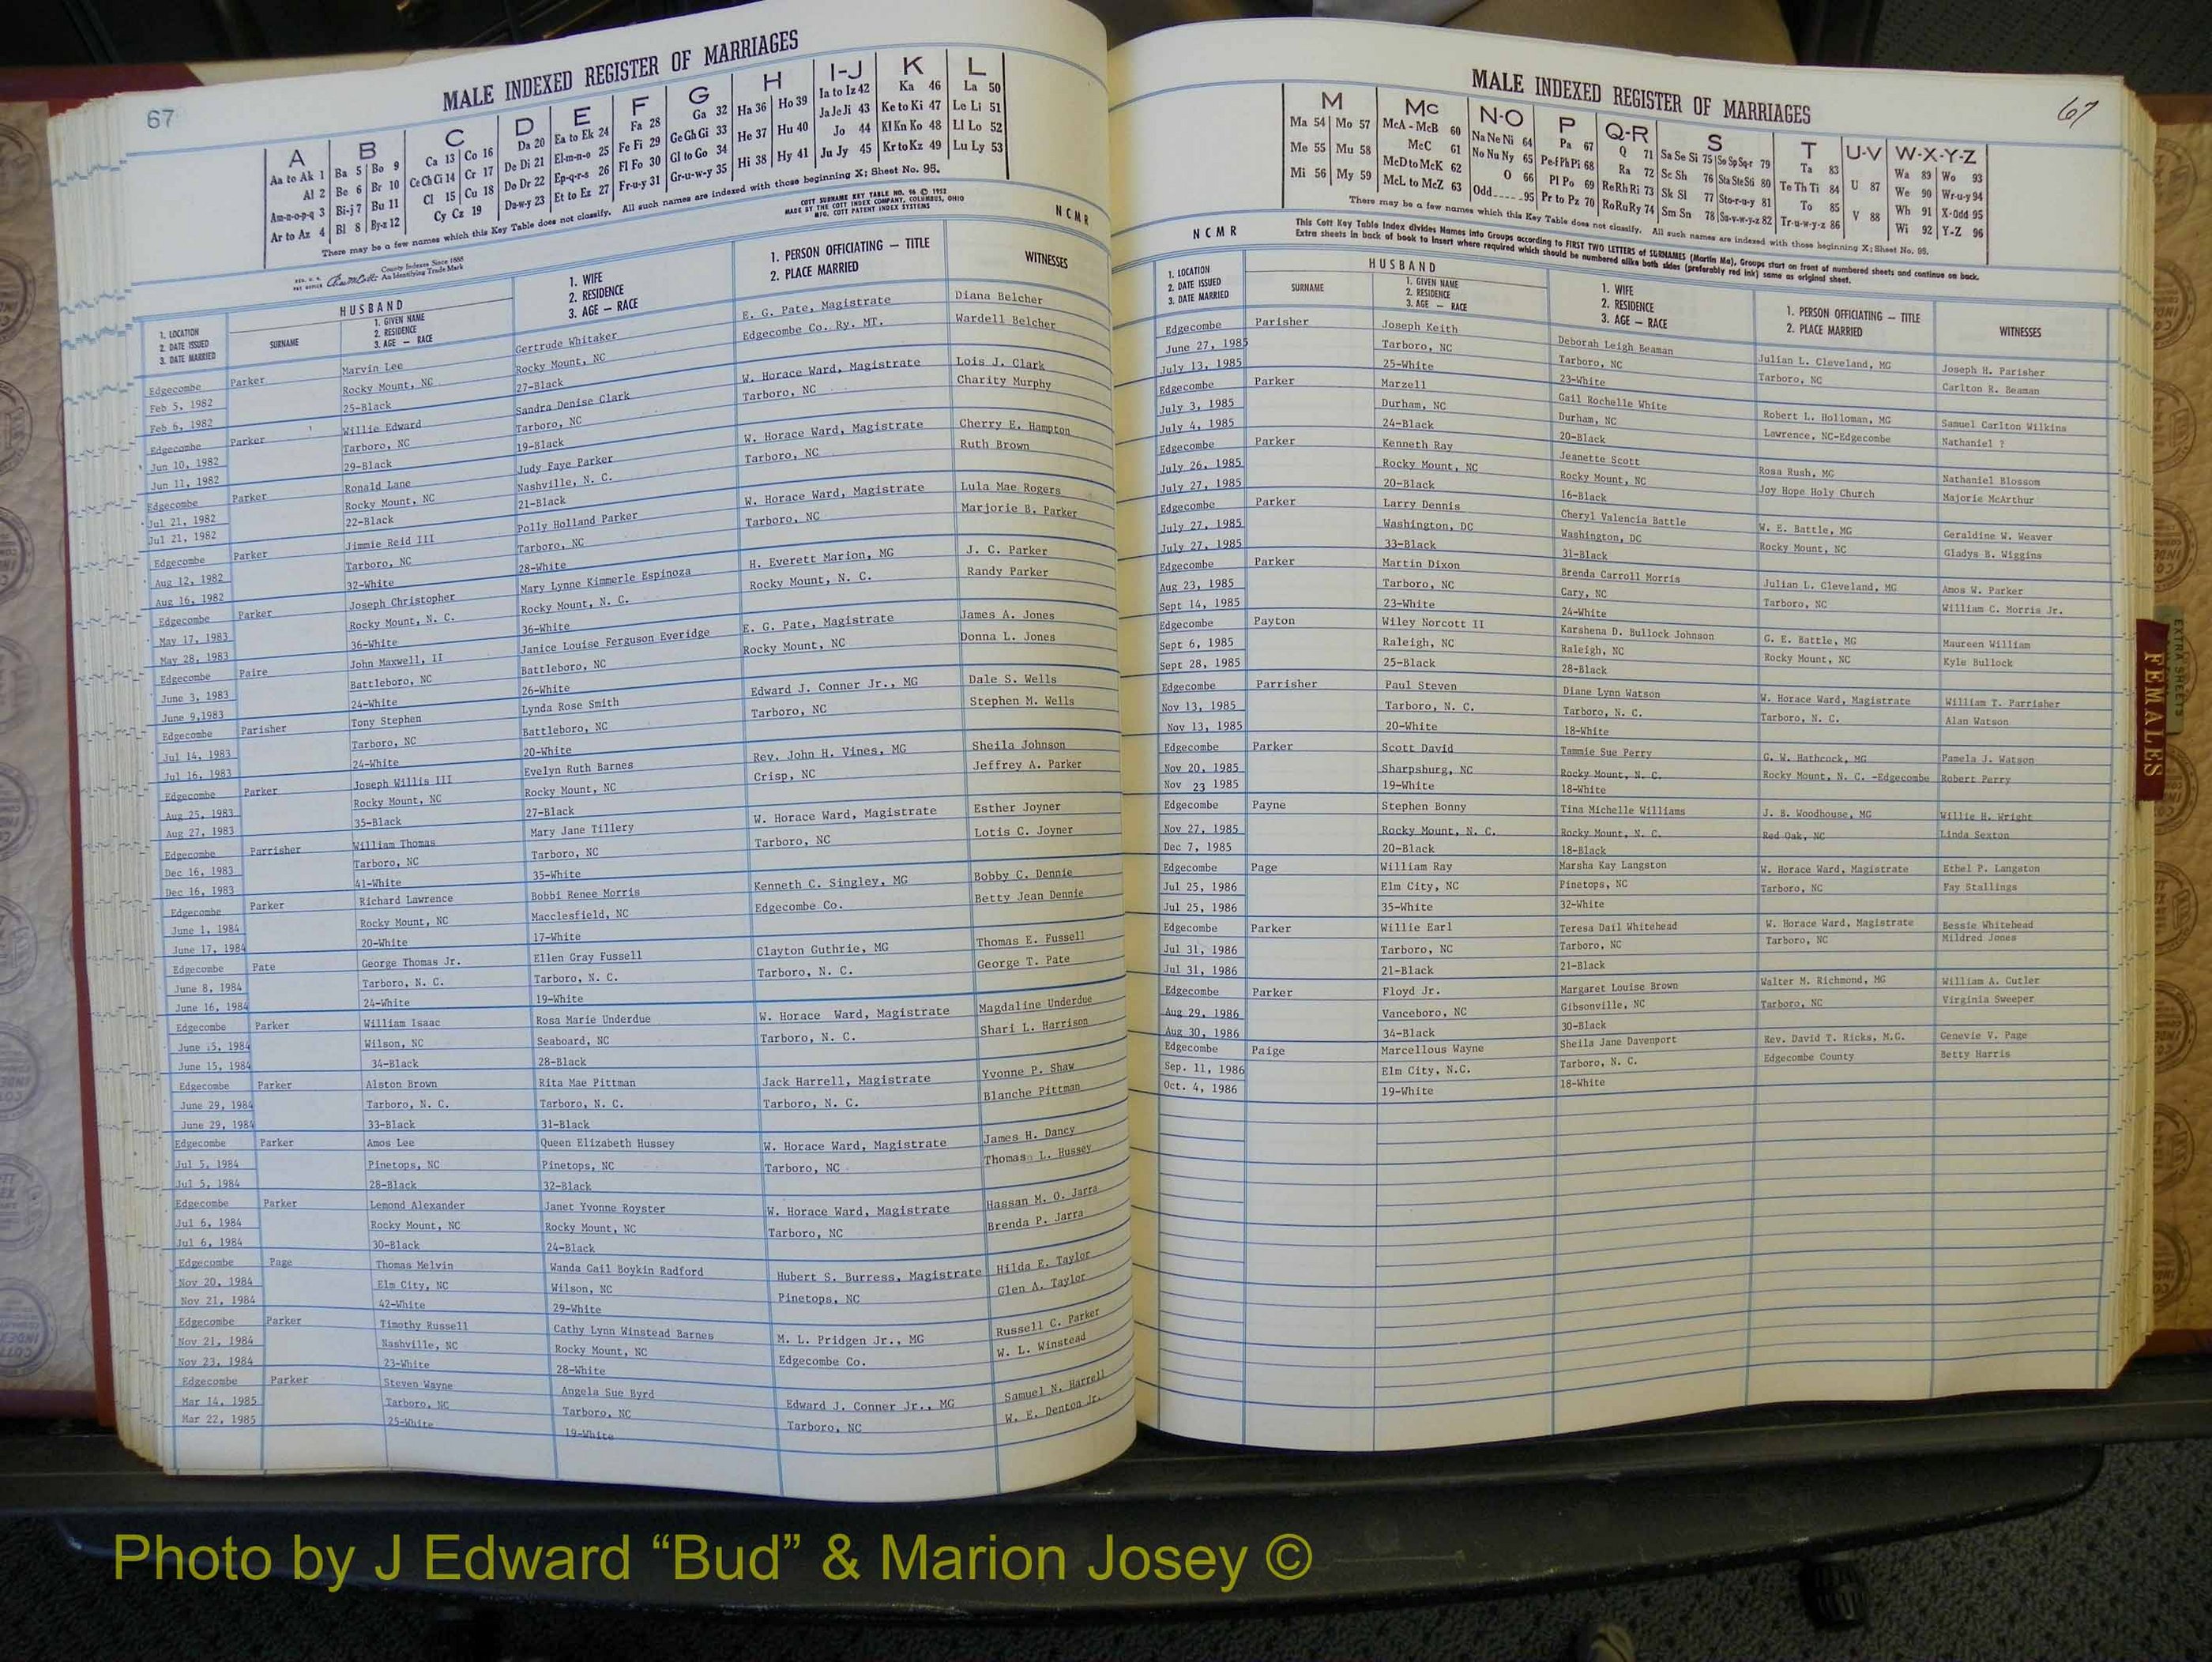 67
MALE INDEXED REGISTER OF MARRIAGES
A B C D E F G H I-J K L
Aa to Ak 1 Ba 5 Bo 9 Ca 13 Co 16 Da 20 Ea to Ek 24 Fa 28 Ga 32 Ha 36 Ho 39 Ia to Iz 42 Ka 46 La 50
Al 2 Be 6 Br 10 Ce Ch Ci 14 Cr 17 De Di 21 El-m-n-o 25 Fe Fi 29 Ge Gh Gi 33 He 37 Hu 40 Ja Je Ji 43 Ke to Ki 47 Le Li 51
Am-n-o-p-q 3 Bi-j 7 Bu 11 Cl 15 Cu 18 Do Dr 22 Ep-q-r-s 26 Fl Fo 30 Gl to Go 34 Hi 38 Hy 41 Jo 44 Kl Kn Ko 48 Ll Lo 52
Ar to Az 4 Bl 8 By-z 12 Cy Cz 19 Du-w-y 23 Et to Ez 27 Fr-u-y 31 Gr-u-w-y 35 Ju Jy 45 Kr to Kz 49 Lu Ly 53
There may be a few names which this Key Table does not classify. All such names are indexed with those beginning X; Sheet No. 95.
COTT SURNAME KEY TABLE NO. 96 © 1952
MADE BY THE COTT INDEX COMPANY, COLUMBUS, OHIO
MFG. COTT PATENT INDEX SYSTEMS
County Indexes Since 1888
An Identifying Trade Mark
NCMR
HUSBAND
1. LOCATION 2. DATE ISSUED 3. DATE MARRIED
SURNAME
1. GIVEN NAME 2. RESIDENCE 3. AGE — RACE
1. WIFE 2. RESIDENCE 3. AGE — RACE
1. PERSON OFFICIATING — TITLE 2. PLACE MARRIED
WITNESSES
Edgecombe Parker Marvin Lee Gertrude Whitaker E. G. Pate, Magistrate Diana Belcher
Feb 5, 1982 Rocky Mount, NC Rocky Mount, NC Edgecombe Co. Ry. MT. Wardell Belcher
Feb 6, 1982 25-Black 27-Black
Edgecombe Parker Willie Edward Sandra Denise Clark W. Horace Ward, Magistrate Lois J. Clark
Jun 10, 1982 Tarboro, NC Tarboro, NC Tarboro, NC Charity Murphy
Jun 11, 1982 29-Black 19-Black
Edgecombe Parker Ronald Lane Judy Faye Parker W. Horace Ward, Magistrate Cherry E. Hampton
Jul 21, 1982 Rocky Mount, NC Nashville, N. C. Tarboro, NC Ruth Brown
Jul 21, 1982 22-Black 21-Black
Edgecombe Parker Jimmie Reid III Polly Holland Parker W. Horace Ward, Magistrate Lula Mae Rogers
Aug 12, 1982 Tarboro, NC Tarboro, NC Tarboro, NC Marjorie B. Parker
Aug 16, 1982 32-White 28-White
Edgecombe Parker Joseph Christopher Mary Lynne Kimmerle Espinoza H. Everett Marion, MG J. C. Parker
May 17, 1983 Rocky Mount, N. C. Rocky Mount, N. C. Rocky Mount, N. C. Randy Parker
May 28, 1983 36-White 36-White
Edgecombe Paire John Maxwell, II Janice Louise Ferguson Everidge E. G. Pate, Magistrate James A. Jones
June 3, 1983 Battleboro, NC Battleboro, NC Rocky Mount, NC Donna L. Jones
June 9,1983 24-White 26-White
Edgecombe Parisher Tony Stephen Lynda Rose Smith Edward J. Conner Jr., MG Dale S. Wells
Jul 14, 1983 Tarboro, NC Battleboro, NC Tarboro, NC Stephen M. Wells
Jul 16, 1983 24-White 20-White
Edgecombe Parker Joseph Willis III Evelyn Ruth Barnes Rev. John H. Vines, MG Sheila Johnson
Aug 25, 1983 Rocky Mount, NC Rocky Mount, NC Crisp, NC Jeffrey A. Parker
Aug 27, 1983 35-Black 27-Black
Edgecombe Parrisher William Thomas Mary Jane Tillery W. Horace Ward, Magistrate Esther Joyner
Dec 16, 1983 Tarboro, NC Tarboro, NC Tarboro, NC Lotis C. Joyner
Dec 16, 1983 41-White 35-White
Edgecombe Parker Richard Lawrence Bobbi Renee Morris Kenneth C. Singley, MG Bobby C. Dennie
June 1, 1984 Rocky Mount, NC Macclesfield, NC Edgecombe Co. Betty Jean Dennie
June 17, 1984 20-White 17-White
Edgecombe Pate George Thomas Jr. Ellen Gray Fussell Clayton Guthrie, MG Thomas E. Fussell
June 8, 1984 Tarboro, N. C. Tarboro, N. C. Tarboro, N. C. George T. Pate
June 16, 1984 24-White 19-White
Edgecombe Parker William Isaac Rosa Marie Underdue W. Horace Ward, Magistrate Magdaline Underdue
June 15, 1984 Wilson, NC Seaboard, NC Tarboro, N. C. Shari L. Harrison
June 15, 1984 34-Black 28-Black
Edgecombe Parker Alston Brown Rita Mae Pittman Jack Harrell, Magistrate Yvonne P. Shaw
June 29, 1984 Tarboro, N. C. Tarboro, N. C. Tarboro, N. C. Blanche Pittman
June 29, 1984 33-Black 31-Black
Edgecombe Parker Amos Lee Queen Elizabeth Hussey W. Horace Ward, Magistrate James H. Dancy
Jul 5, 1984 Pinetops, NC Pinetops, NC Tarboro, NC Thomas L. Hussey
Jul 5, 1984 28-Black 32-Black
Edgecombe Parker Lemond Alexander Janet Yvonne Royster W. Horace Ward, Magistrate Hassan M. O. Jarra
Jul 6, 1984 Rocky Mount, NC Rocky Mount, NC Tarboro, NC Brenda P. Jarra
Jul 6, 1984 30-Black 24-Black
Edgecombe Page Thomas Melvin Wanda Gail Boykin Radford Hubert S. Burress, Magistrate Hilda E. Taylor
Nov 20, 1984 Elm City, NC Wilson, NC Pinetops, NC Glen A. Taylor
Nov 21, 1984 42-White 29-White
Edgecombe Parker Timothy Russell Cathy Lynn Winstead Barnes M. L. Pridgen Jr., MG Russell C. Parker
Nov 21, 1984 Nashville, NC Rocky Mount, NC Edgecombe Co. W. L. Winstead
Nov 23, 1984 23-White 28-White
Edgecombe Parker Steven Wayne Angela Sue Byrd Edward J. Conner Jr., MG Samuel N. Harrell
Mar 14, 1985 Tarboro, NC Tarboro, NC Tarboro, NC W. E. Denton Jr.
Mar 22, 1985 25-White 19-White
67
MALE INDEXED REGISTER OF MARRIAGES
M Mc N-O P Q-R S T U-V W-X-Y-Z
Ma 54 Mo 57 McA - McB 60 Na Ne Ni 64 Pa 67 Q 71 Sa Se Si 75 So Sp Sq-r 79 Ta 83 Wa 89 Wo 93
Me 55 Mu 58 McC 61 No Nu Ny 65 Pe-f Ph Pi 68 Ra 72 Sc Sh 76 Sta Ste Sti 80 Te Th Ti 84 U 87 We 90 Wr-u-y 94
Mi 56 My 59 McD to McK 62 O 66 Pl Po 69 Re Rh Ri 73 Sk Sl 77 Sto-r-u-y 81 To 85 V 88 Wh 91 X-Odd 95
McL to McZ 63 Odd 95 Pr to Pz 70 Ro Ru Ry 74 Sm Sn 78 Su-v-w-y-z 82 Tr-u-w-y-z 86 Wi 92 Y-Z 96
There may be a few names which this Key Table does not classify. All such names are indexed with those beginning X; Sheet No. 95.
NCMR
This Cott Key Table Index divides Names into Groups according to FIRST TWO LETTERS of SURNAMES (Martin Ma), Groups start on front of numbered sheets and continue on back.
Extra sheets in back of book to insert where required which should be numbered alike both sides (preferably red ink) same as original sheet.
HUSBAND
1. LOCATION 2. DATE ISSUED 3. DATE MARRIED
SURNAME
1. GIVEN NAME 2. RESIDENCE 3. AGE — RACE
1. WIFE 2. RESIDENCE 3. AGE — RACE
1. PERSON OFFICIATING — TITLE 2. PLACE MARRIED
WITNESSES
Edgecombe Parisher Joseph Keith Deborah Leigh Beaman Julian L. Cleveland, MG Joseph H. Parisher
June 27, 1985 Tarboro, NC Tarboro, NC Tarboro, NC Carlton R. Beaman
July 13, 1985 25-White 23-White
Edgecombe Parker Marzell Gail Rochelle White Robert L. Holloman, MG Samuel Carlton Wilkins
July 3, 1985 Durham, NC Durham, NC Lawrence, NC-Edgecombe Nathaniel ?
July 4, 1985 24-Black 20-Black
Edgecombe Parker Kenneth Ray Jeanette Scott Rosa Rush, MG Nathaniel Blossom
July 26, 1985 Rocky Mount, NC Rocky Mount, NC Joy Hope Holy Church Majorie McArthur
July 27, 1985 20-Black 16-Black
Edgecombe Parker Larry Dennis Cheryl Valencia Battle W. E. Battle, MG Geraldine W. Weaver
July 27, 1985 Washington, DC Washington, DC Rocky Mount, NC Gladys B. Wiggins
July 27, 1985 33-Black 31-Black
Edgecombe Parker Martin Dixon Brenda Carroll Morris Julian L. Cleveland, MG Amos W. Parker
Aug 23, 1985 Tarboro, NC Cary, NC Tarboro, NC William C. Morris Jr.
Sept 14, 1985 23-White 24-White
Edgecombe Payton Wiley Norcott II Karshena D. Bullock Johnson G. E. Battle, MG Maureen William
Sept 6, 1985 Raleigh, NC Raleigh, NC Rocky Mount, NC Kyle Bullock
Sept 28, 1985 25-Black 28-Black
Edgecombe Parrisher Paul Steven Diane Lynn Watson W. Horace Ward, Magistrate William T. Parrisher
Nov 13, 1985 Tarboro, N. C. Tarboro, N. C. Tarboro, N. C. Alan Watson
Nov 13, 1985 20-White 18-White
Edgecombe Parker Scott David Tammie Sue Perry G. W. Hathcock, MG Pamela J. Watson
Nov 20, 1985 Sharpsburg, NC Rocky Mount, N. C. Rocky Mount, N. C. -Edgecombe Robert Perry
Nov 23 1985 19-White 18-White
Edgecombe Payne Stephen Bonny Tina Michelle Williams J. B. Woodhouse, MG Willie H. Wright
Nov 27, 1985 Rocky Mount, N. C. Rocky Mount, N. C. Red Oak, NC Linda Sexton
Dec 7, 1985 20-Black 18-Black
Edgecombe Page William Ray Marsha Kay Langston W. Horace Ward, Magistrate Ethel P. Langston
Jul 25, 1986 Elm City, NC Pinetops, NC Tarboro, NC Fay Stallings
Jul 25, 1986 35-White 32-White
Edgecombe Parker Willie Earl Teresa Dail Whitehead W. Horace Ward, Magistrate Bessie Whitehead
Jul 31, 1986 Tarboro, NC Tarboro, NC Tarboro, NC Mildred Jones
Jul 31, 1986 21-Black 21-Black
Edgecombe Parker Floyd Jr. Margaret Louise Brown Walter M. Richmond, MG William A. Cutler
Aug 29, 1986 Vanceboro, NC Gibsonville, NC Tarboro, NC Virginia Sweeper
Aug 30, 1986 34-Black 30-Black
Edgecombe Paige Marcellous Wayne Sheila Jane Davenport Rev. David T. Ricks, M.G. Genevie V. Page
Sep. 11, 1986 Elm City, N.C. Tarboro, N. C. Edgecombe County Betty Harris
Oct. 4, 1986 19-White 18-White
EXTRA SHEETS
FEMALES
Photo by J Edward “Bud” & Marion Josey ©